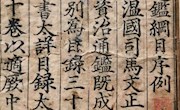 鑑綱目序例
溫國司馬文正
資治通鑑既成
別爲目錄三十
書太詳目錄太
十卷以適厥中